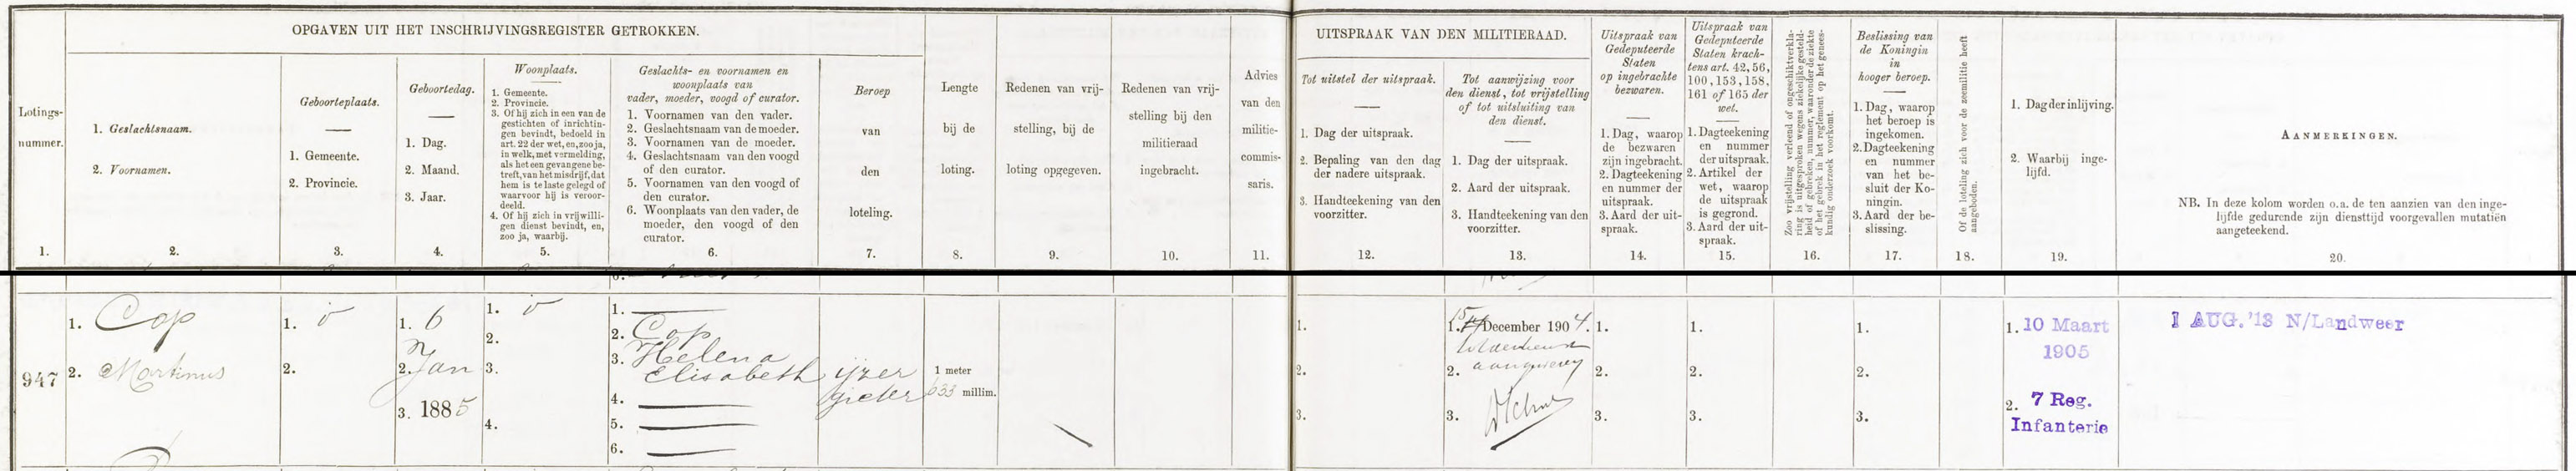 OPGAVEN UIT HET INSCHRIJVINGSREGISTER GETROKKEN.
Lotings-
nummer.
1.
1. Geslachtsnaam.
2. Voornamen.
2.
Geboorteplaats.
1. Gemeente.
2. Provincie.
3.
Geboortedag.
1. Dag.
2. Maand.
3. Jaar.
4.
Woonplaats.
1. Gemeente.
2. Provincie.
3. Of hij zich in een van de
gestichten of inrichtin-
gen bevindt, bedoeld in
art. 22 der wet, en, zoo ja,
in welk, met vermelding,
als het een gevangene be-
treft, van het misdrijf, dat
hem is te laste gelegd of
waarvoor hij is veroor-
deeld.
4. Of hij zich in vrijwilli-
gen dienst bevindt, en,
zoo ja, waarbij.
5.
Geslachts- en voornamen en
woonplaats van
vader, moeder, voogd of curator.
1. Voornamen van den vader.
2. Geslachtsnaam van de moeder.
3. Voornamen van de moeder.
4. Geslachtsnaam van den voogd
of den curator.
5. Voornamen van den voogd of
den curator.
6. Woonplaats van den vader, de
moeder, den voogd of den
curator.
6.
Beroep
van
den
loteling.
7.
Lengte
bij de
loting.
8.
Redenen van vrij-
stelling, bij de
loting opgegeven.
9.
Redenen van vrij-
stelling bij den
militieraad
ingebracht.
10.
Advies
van den
militie-
commis-
saris.
11.
UITSPRAAK VAN DEN MILITIERAAD.
Tot uitstel der uitspraak.
1. Dag der uitspraak.
2. Bepaling van den dag
der nadere uitspraak.
3. Handteekening van den
voorzitter.
12.
Tot aanwijzing voor
den dienst, tot vrijstelling
of tot uitsluiting van
den dienst.
1. Dag der uitspraak.
2. Aard der uitspraak.
3. Handteekening van den
voorzitter.
13.
Uitspraak van
Gedeputeerde
Staten
op ingebrachte
bezwaren.
1. Dag, waarop
de bezwaren
zijn ingebracht.
2. Dagteekening
en nummer der
uitspraak.
3. Aard der uit-
spraak.
14.
Uitspraak van
Gedeputeerde
Staten krach-
tens art. 42, 56,
100, 153, 158,
161 of 165 der
wet.
1. Dagteekening
en nummer
der uitspraak.
2. Artikel der
wet, waarop
de uitspraak
is gegrond.
3. Aard der uit-
spraak.
15.
Zoo vrijstelling verleend of ongeschiktverkla-
ring is uitgesproken wegens ziekelijke gesteld-
heid of gebreken, nummer, waaronder de ziekte
of het gebrek in het reglement op het genees-
kundig onderzoek voorkomt.
16.
Beslissing van
de Koningin
in
hooger beroep.
1. Dag, waarop
het beroep is
ingekomen.
2. Dagteekening
en nummer
van het be-
sluit der Ko-
ningin.
3. Aard der be-
slissing.
17.
Of de loteling zich voor de zeemilitie heeft
aangeboden.
18.
1. Dag der inlijving.
2. Waarbij inge-
lijfd.
19.
AANMERKINGEN.
NB. In deze kolom worden o.a. de ten aanzien van den inge-
lijfde gedurende zijn diensttijd voorgevallen mutatiën
aangeteekend.
20.
947
1. Cop
2. Martinus
1.
2.
1. 6
2. Jan
3. 1885
1.
2.
3.
4.
1.
2. Cop
3. Helena
Elisabeth
4.
5.
6.
ijzer
gieter
1 meter
633 millim.
1.
2.
3.
1. 15 December 1904.
2. aangewezen
3.
1.
2.
3.
1.
2.
3.
1.
2.
3.
1. 10 Maart
1905
2. 7 Reg.
Infanterie
1 AUG. '13 N/Landweer